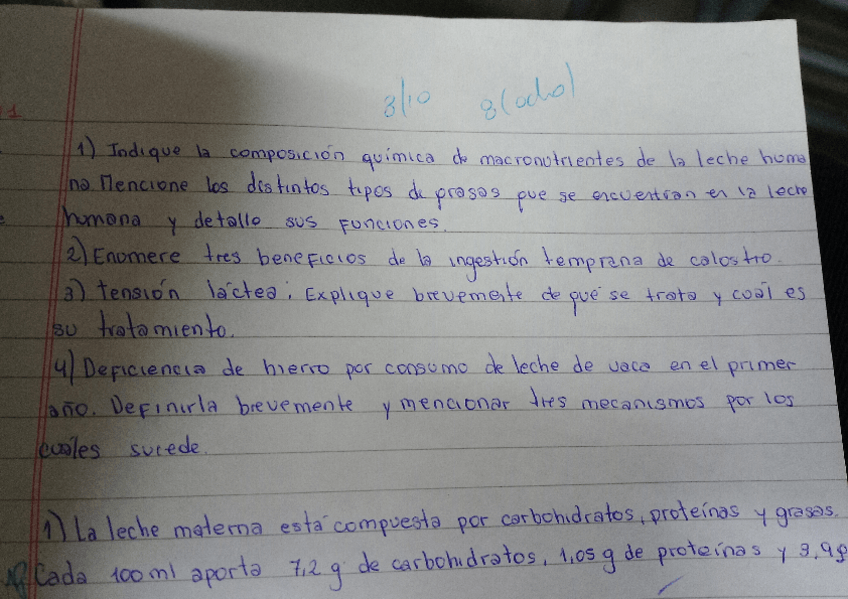 8/10 8(ocho)
1
1) Indique la composición química de macronutrientes de la leche huma
na. Mencione los distintos tipos de grasas que se encuentran en la leche
humana y detalle sus funciones.
2) Enumere tres beneficios de la ingestión temprana de calostro.
3) tensión láctea: Explique brevemente de qué se trata y cuál es
su tratamiento.
4) Deficiencia de hierro por consumo de leche de vaca en el primer
año. Definirla brevemente y mencionar tres mecanismos por los
cuales sucede.
1) La leche materna está compuesta por carbohidratos, proteínas y grasas.
Cada 100 ml aporta 7,2 g de carbohidratos, 1,05 g de proteínas y 3,9 g